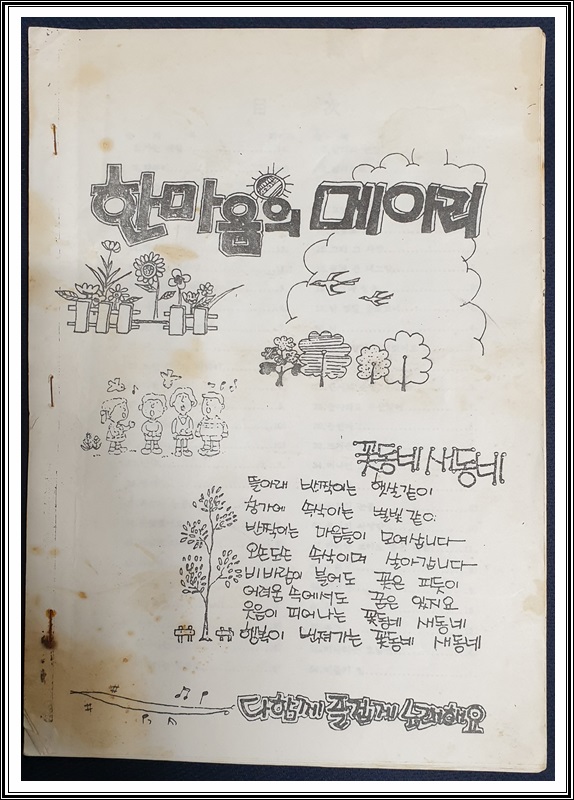 한마음의 메아리
꽃동네 새동네
뜰아래 반짝이는 햇살같이
창가에 속삭이는 별빛같이
반짝이는 마음들이 모여삽니다
오손도손 속삭이며 살아갑니다
비바람이 불어도 꽃은 피듯이
어려움 속에서도 꿈은 있지요
웃음이 피어나는 꽃동네 새동네
행복이 번져가는 꽃동네 새동네
다함께 즐겁게 노래해요